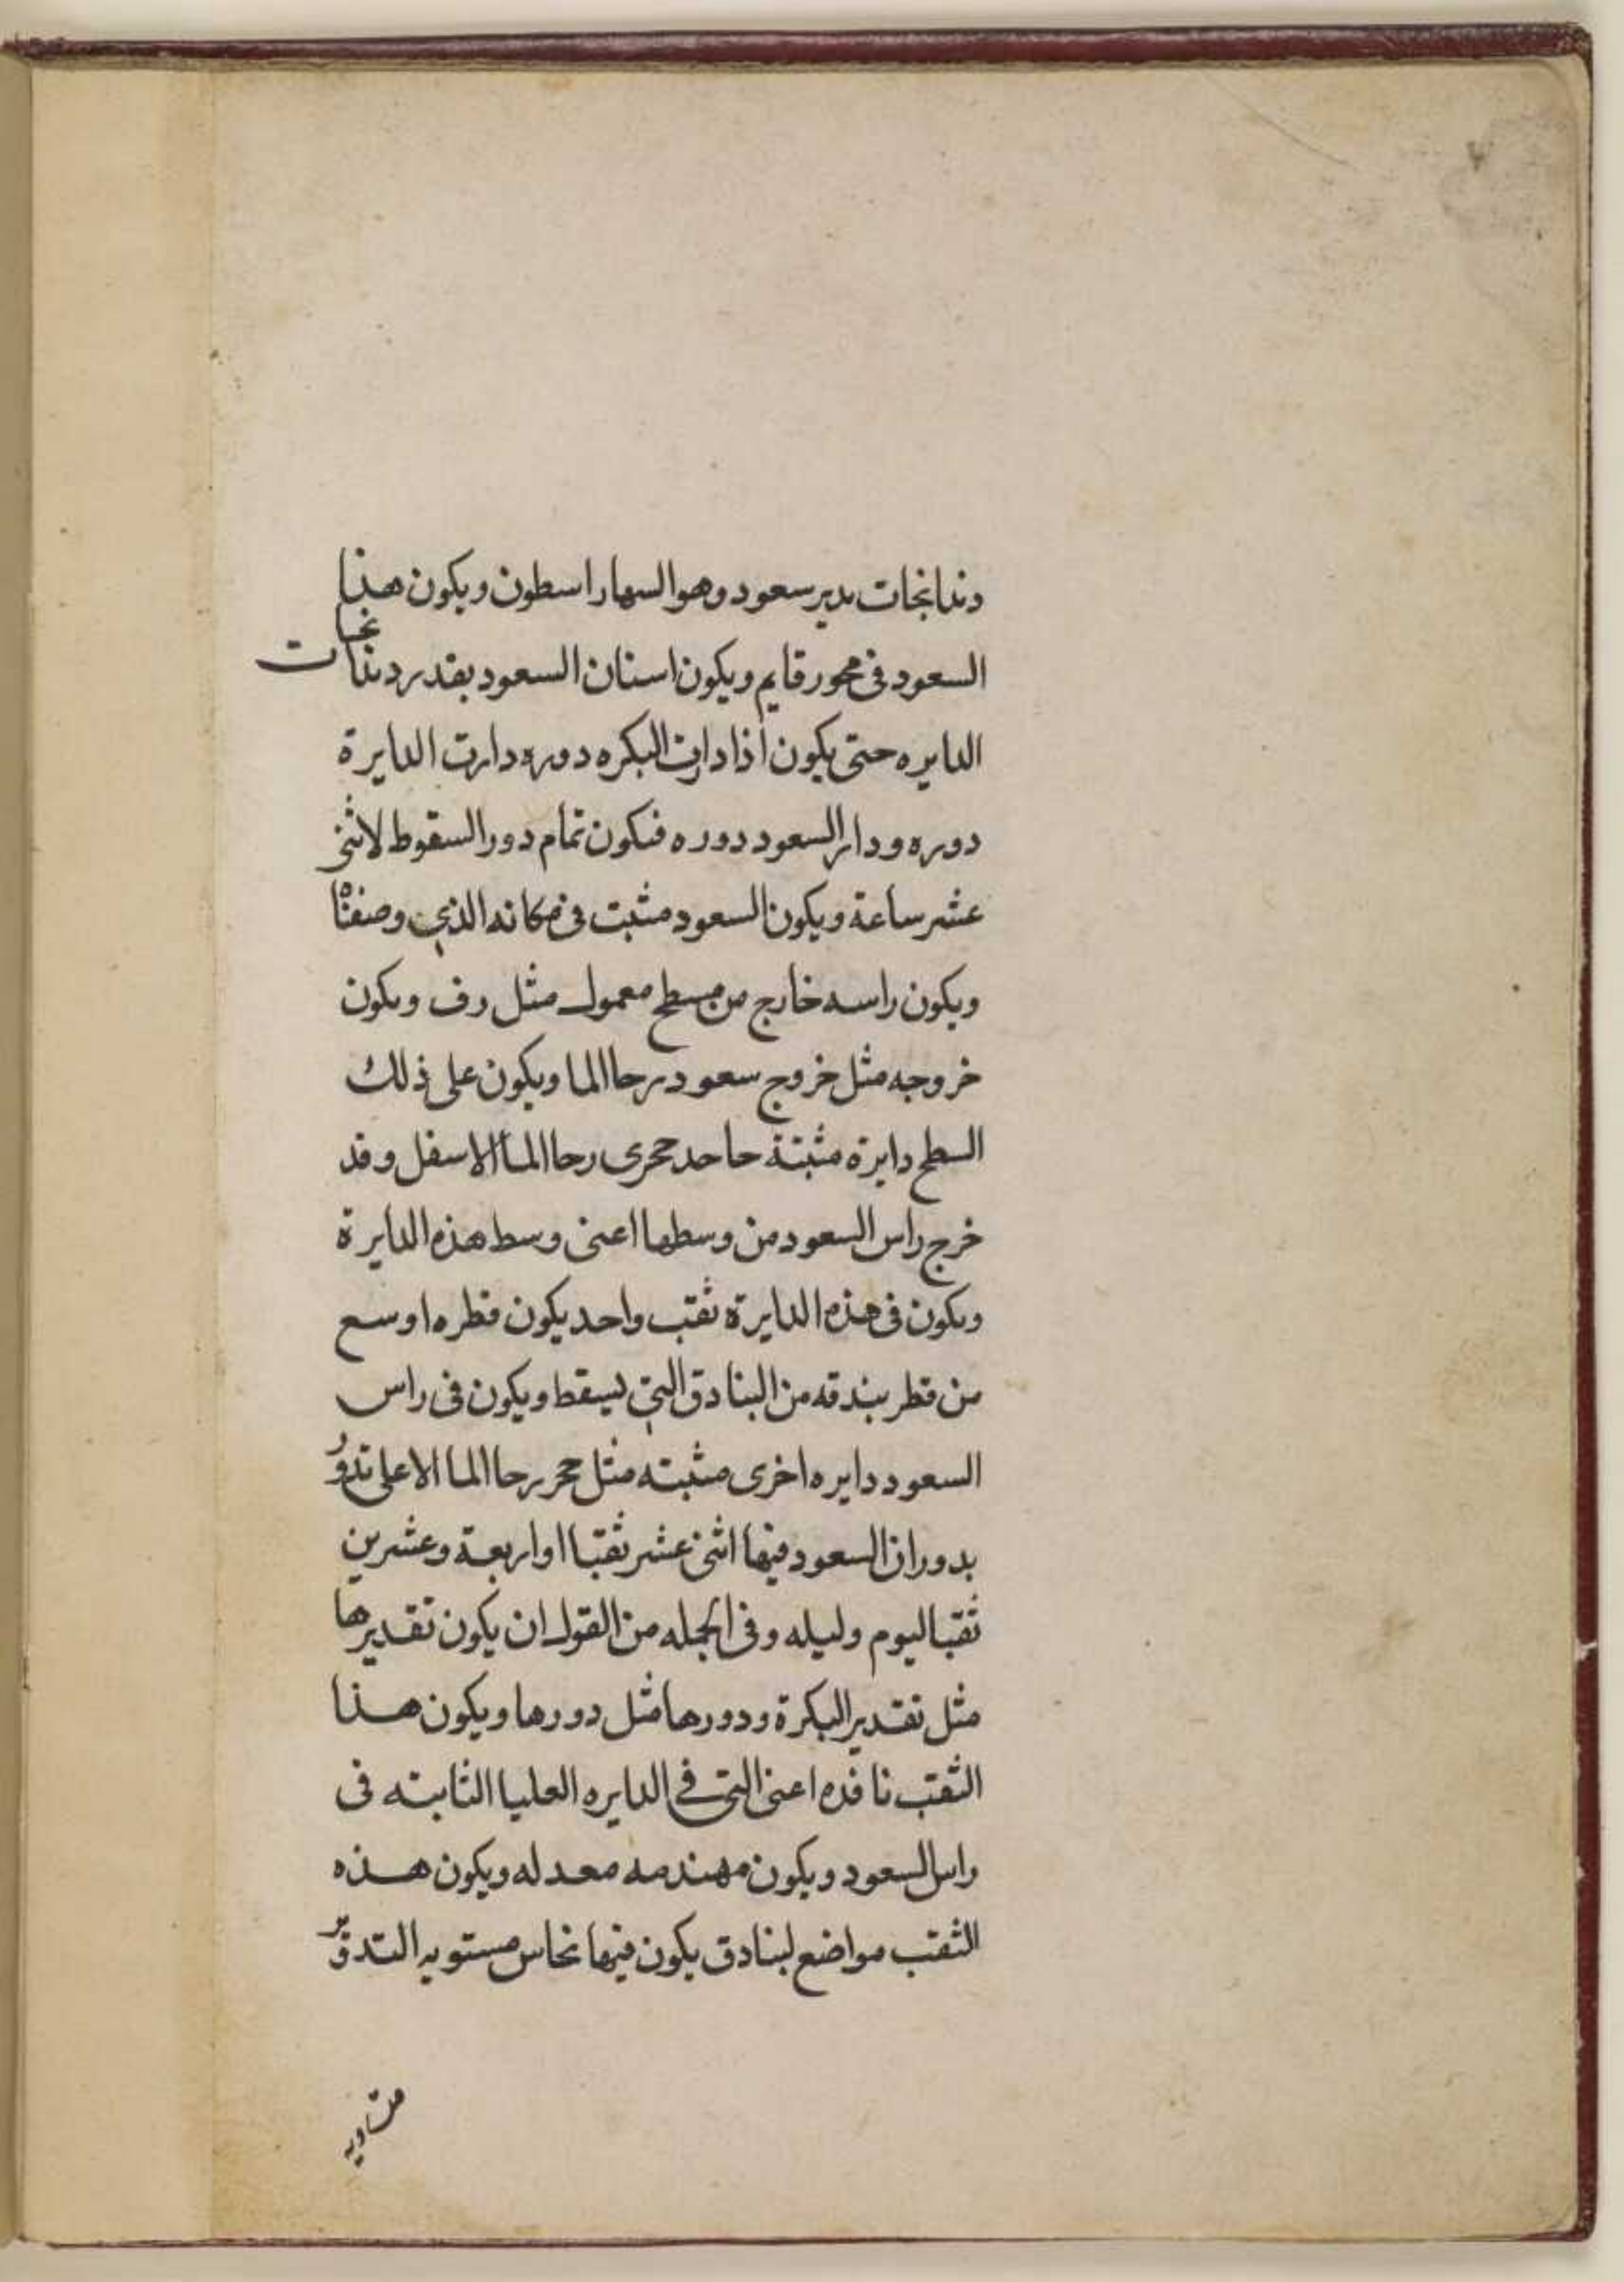 ٧
دندانجات يدير سعود وهو السهار اسطون ويكون هذا
السعود في محور قايم ويكون اسنان السعود بقدر دندانجات
الدايره حتى يكون اذا دارت البكره دوره دارت الدايرة
دوره ودار السعود دوره فىكون تمام دور السقوط لاثنى
عشر ساعة ويكون السعود مثبت فى مكانه الذي وصفناه
ويكون راسه خارج من مسطح معمول مثل رف وىكون
خروجه مثل خروج سعود رحا الما ويكون على ذلك
السطح دايرة مثبتة حاحد حجرى رحا الما الاسفل وقد
خرج راس السعود من وسطها اعنى وسط هذه الدايرة
وىكون فى هذه الدايرة ثقب واحد يكون قطره اوسع
من قطر بندقه من البنادق التي يسقط ويكون فى راس
السعود دايره اخرى مثبته مثل حجر رحا الما الاعلى تدور
بدوران السعود فيها اثنى عشر ثقبا او اربعة وعشرين
ثقبا ليوم وليله وفى الجمله من القول ان يكون تقديرها
مثل تقدير البكرة ودورها مثل دورها ويكون هذا
الثقب نافذه اعنى التى فى الدايره العليا الثابته فى
راس السعود ويكون مهندمه معدله ويكون هذه
الثقب مواضع لبنادق يكون فيها نحاس مستويه التدوير
متساويه